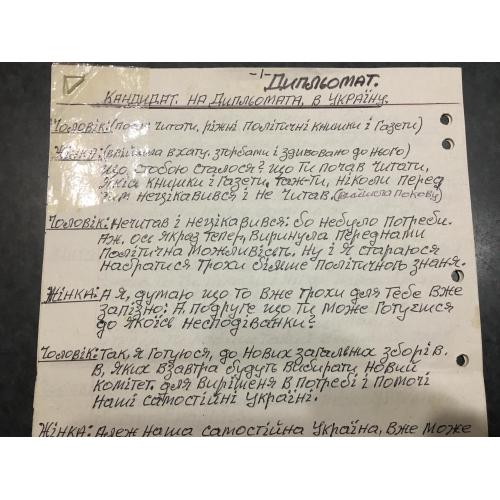 -1- Дипльомат.
Кандидат. на Дипльомата, в Україну.
Чоловік: (почав читати, ріжні політичні книшки і газети)
Жінка: (ввійшла в хату. з торбами і здивовано до нього)
що, стобою сталося? що ти почав читати,
якіа книшки і газети, таж-ти, ніколи перед
тим нецікавився і не читав.
Чоловік: Нечитав і нецікавився: бо небуло потреби.
Аж, ось якраз тепер, виринула перednами
політична можливість. Ну і я стараюся
набратися трохи більше політичного знаня.
Жінка: А я, думаю що то вже трохи для тебе вже
запізно: А, подруге що ти може готуєшся
до якоїсь несподіванки?
Чоловік: Так, я готуюся, до нових загальних зборів.
в, яких взавтра будуть вибирати, новий
комітет. для вирішеня в потребі і помочі
наші самостійні Україні.
Жінка: Алеж наша самостійна Україна, вже може